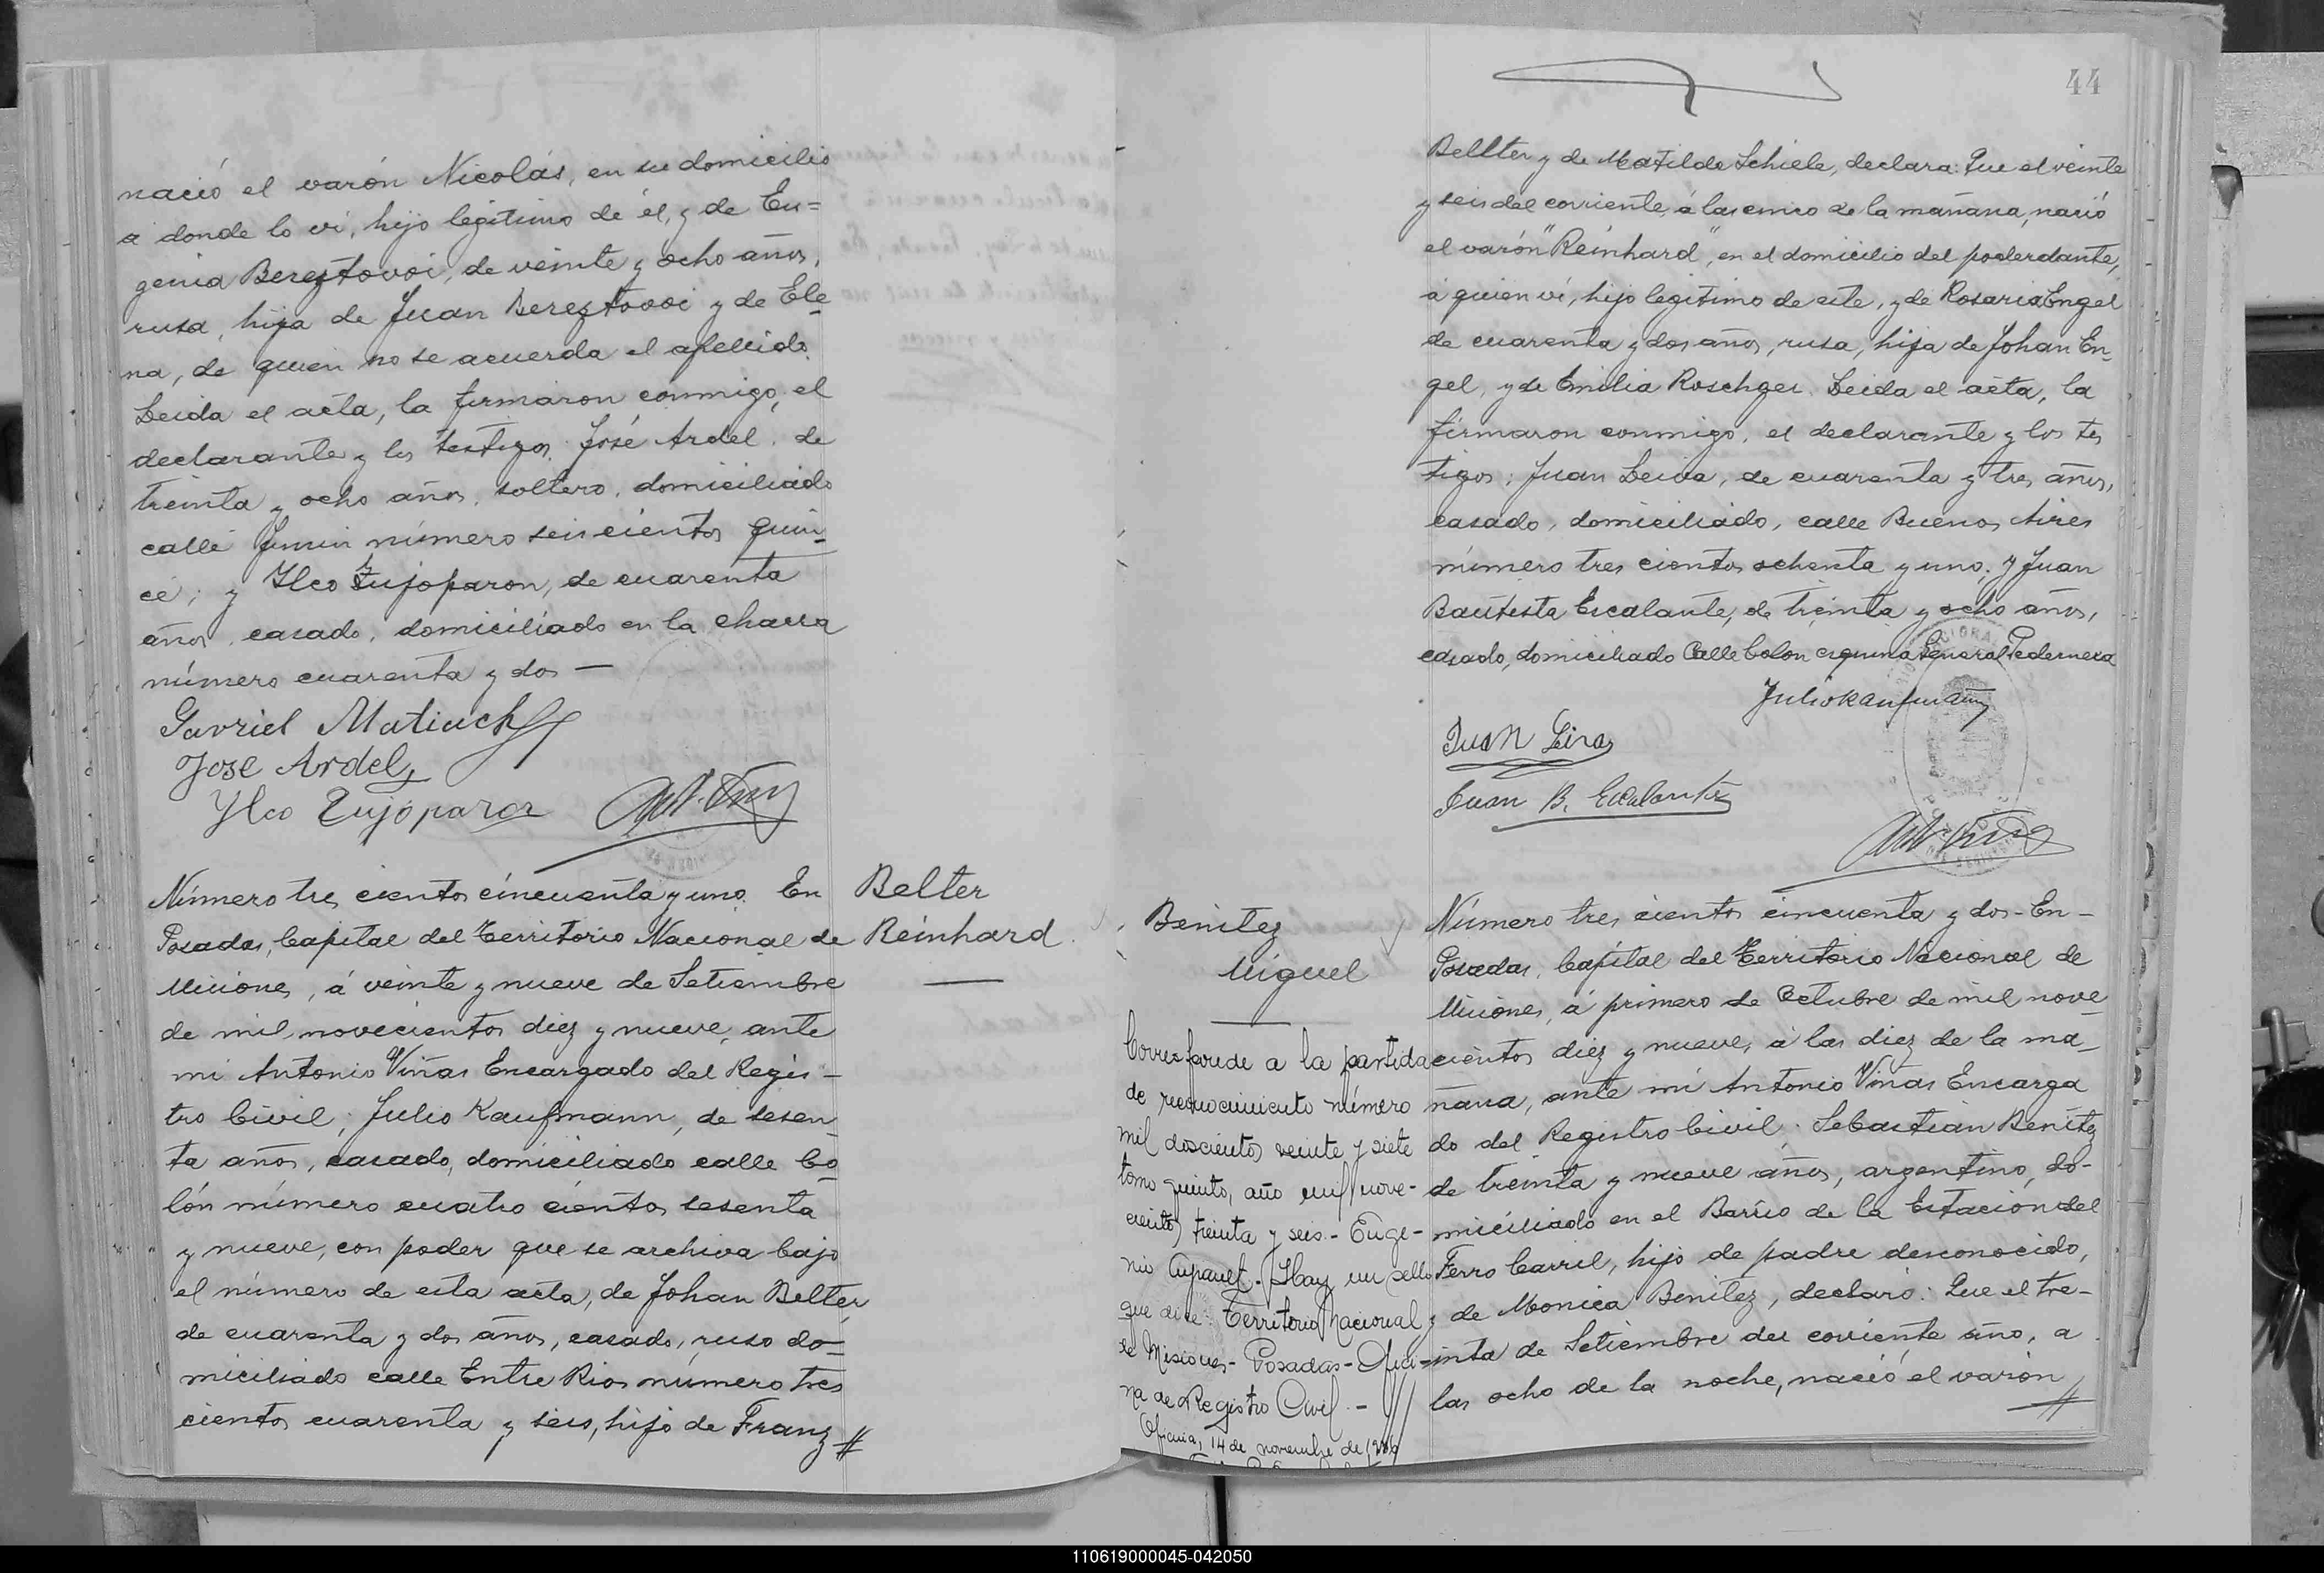 nació el varón Nicolás, en su domicilio
a donde lo ví, hijo legítimo de él, y de Eu=
genia Bereztovoi, de veinte y ocho años,
rusa, hija de Juan Bereztovoi y de Ele-
na, de quien no se acuerda el apellido.
Leida el acta, la firmaron conmigo, el
declarante y los testigos. José Ardel, de
treinta y ocho años, soltero, domiciliado
calle Junin número seiscientos quin-
ce; y Ylco Zujoparon, de cuarenta
años, casado, domiciliado en la chacra
número cuarenta y dos —
Gavriel Matiuch
Jose Ardel
Ylco Zujoparor
Número tres cientos cincuenta y uno. En
Posadas, Capital del Territorio Nacional de
Misiones, á veinte y nueve de Setiembre
de mil novecientos diez y nueve, ante
mi Antonio Viñas Encargado del Regis-
tro Civil; Julio Kaufmann, de sesen-
ta años, casado, domiciliado calle Co-
lón número cuatro cientos sesenta
y nueve, con poder que se archiva bajo
el número de esta acta, de Johan Belter,
de cuarenta y dos años, casado, ruso do=
miciliado calle Entre Rios número tres
cientos cuarenta y seis, hijo de Franz #
Belter
Reinhard
44
Bellter y de Matilde Schiele, declara: Que el veinte
y seis del corriente, á las cinco de la mañana, nació
el varón "Reinhard", en el domicilio del poderdante,
á quien ví, hijo legítimo de este, y de Rosaria Engel
de cuarenta y dos años, rusa, hija de Johan En-
gel, y de Emilia Roschger. Leida el acta, la
firmaron conmigo, el declarante y los tes
tigos: Juan Leiva, de cuarenta y tres años,
casado, domiciliado, calle Buenos Aires
número tres cientos ochenta y uno; y Juan
Bautista Escalante, de treinta y ocho años,
casado, domiciliado Calle Colon esquina General Pedernera
Julio Kaufmann
Juan Leiva
Juan B. Escalante
Benitez
Miguel
Corresponde a la partida
de reconocimiento número
mil doscientos veinte y siete
tomo quinto, año mil nove-
cientos treinta y seis.- Euge-
nio . Hay un sello
que dice: Territorio Nacional
de Misiones - Posadas - Ofici-
na de Registro Civil. -
Oficina, 14 de noviembre de
Número tres cientos cincuenta y dos - En -
Posadas, Capital del Territorio Nacional de
Misiones, á primero de Octubre de mil nove-
cientos diez y nueve, á las diez de la ma-
ñana, ante mí Antonio Viñas Encarga
do del Registro Civil; Sebastián Benítez
de treinta y nueve años, argentino, do-
miciliado en el Barrio de la Estación del
Ferro Carril, hijo de padre desconocido,
y de Monica Benitez, declaró: Que el tre-
inta de Setiembre del corriente año, a
las ocho de la noche, nació el varón
#
110619000045-042050